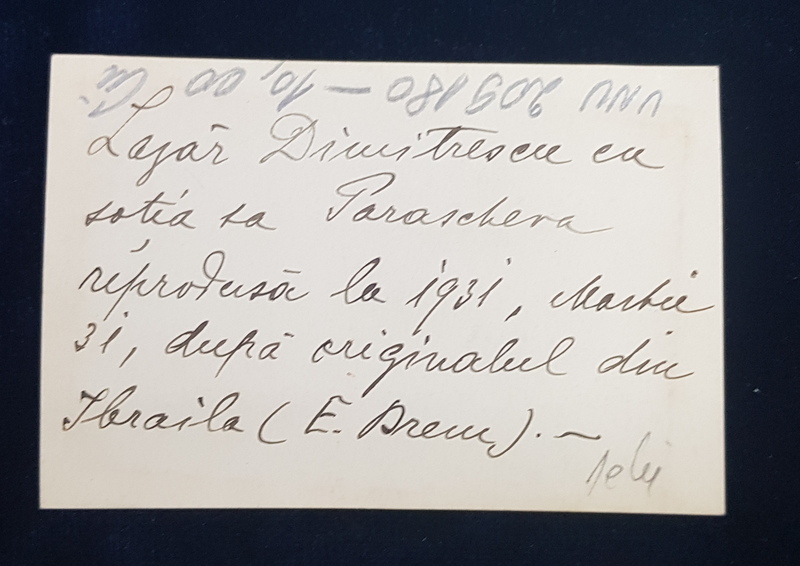 Lazăr Dimitrescu cu
soția sa Parascheva
reprodusă la 1931, Martie
31, după originalul din
Ibraila ( E. Drem ). –
VNU 209180 – 10,00